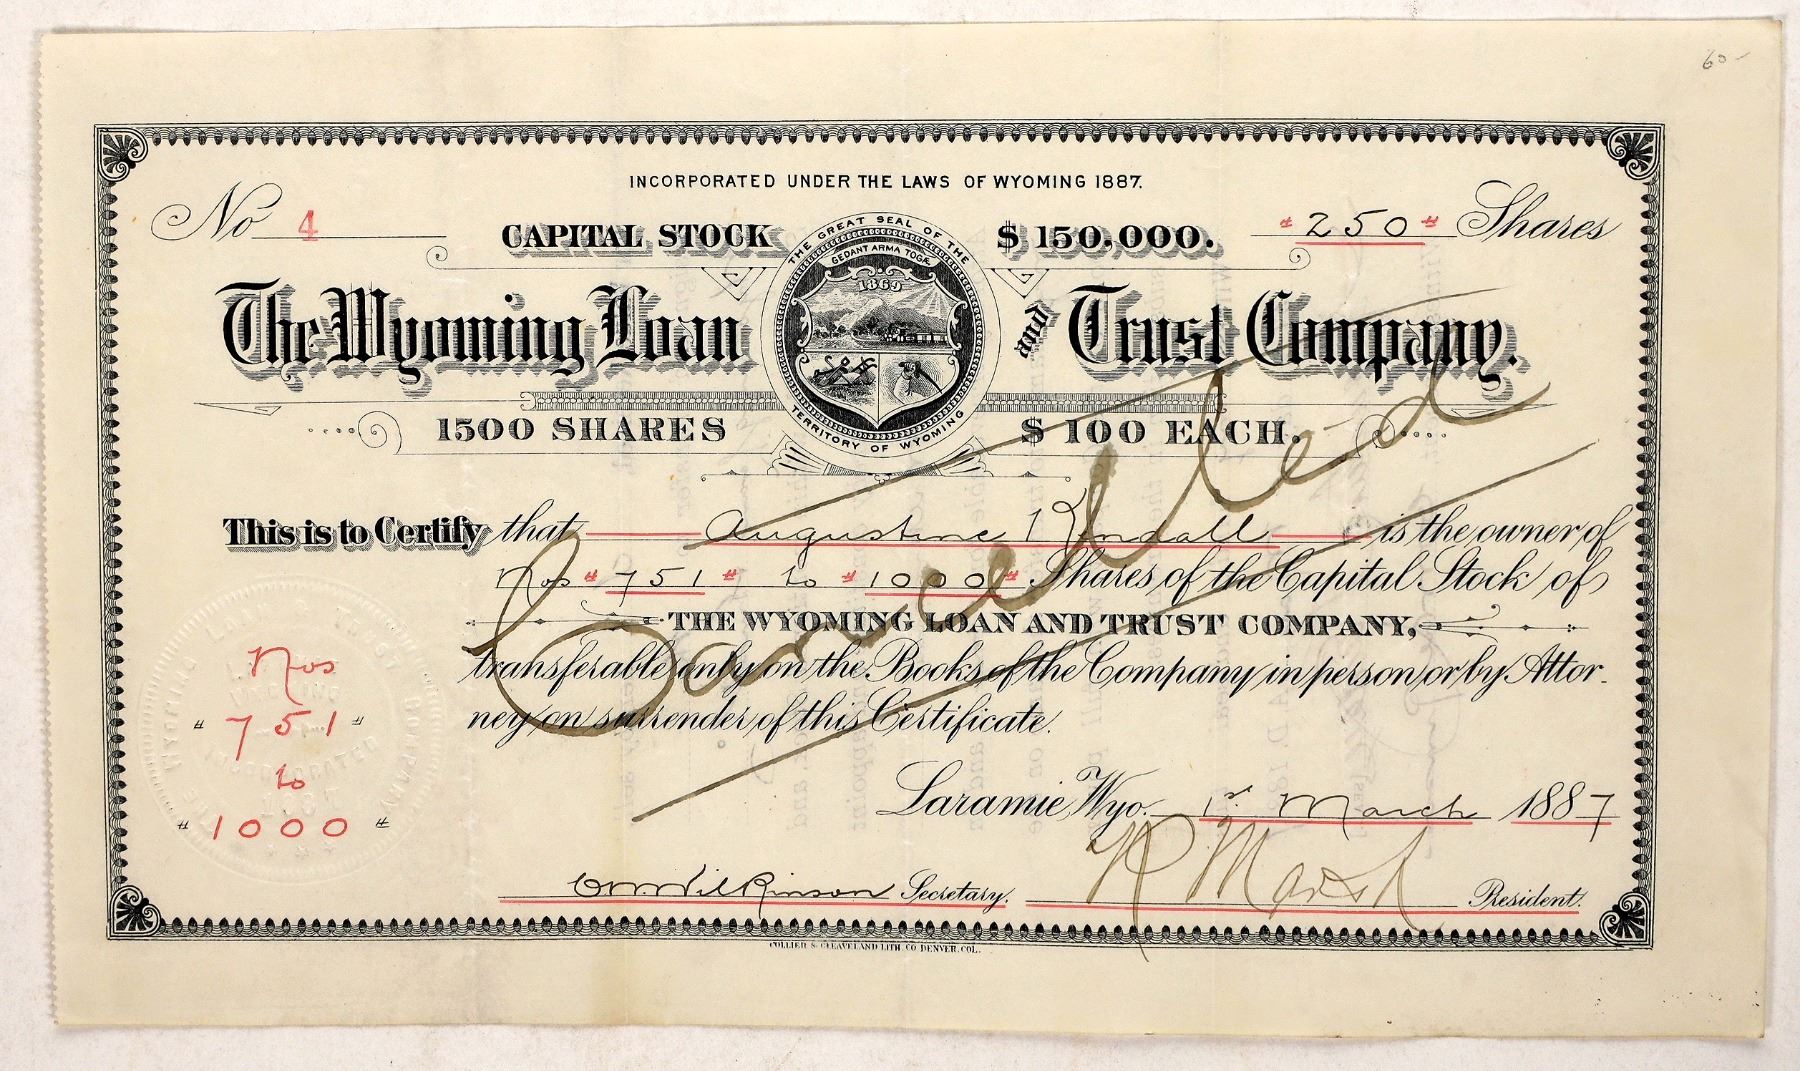 60-
INCORPORATED UNDER THE LAWS OF WYOMING 1887.
No 4
CAPITAL STOCK $150,000.
"250" Shares
THE GREAT SEAL OF THE
TERRITORY OF WYOMING
CEDANT ARMA TOGÆ
1869
The Wyoming Loan and Trust Company.
1500 SHARES $100 EACH.
Cancelled
This is to Certify that Augustine Kendall is the owner of
Nos "751" to "1000" Shares of the Capital Stock of
THE WYOMING LOAN AND TRUST COMPANY,
transferable only on the Books of the Company in person or by Attor-
ney on surrender of this Certificate.
Nos
"751"
to
"1000"
Laramie, Wyo. 1st March 1887
Wilkinson Secretary. Marsh President.
COLLIER & CLEAVELAND LITH. CO DENVER, COL.